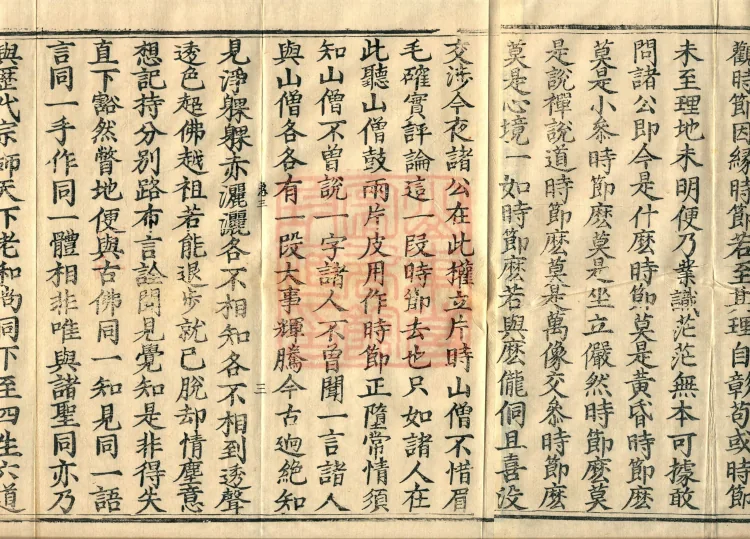 觀時節因緣時節若至其理自彰苟或時節
未至理地未明便乃業識茫茫無本可據敢
問諸公即今是什麽時節莫是黃昏時節麽
莫是小叅時節麽莫是坐立儼然時節麽莫
是說禪說道時節麽莫是萬像交叅時節麽
莫是心境一如時節麽若與麽儱侗且喜沒
交涉今夜諸公在此權立片時山僧不惜眉
毛確實評論這一段時節去也只如諸人在
此聽山僧鼓兩片皮用作時節正墮常情須
知山僧不曾說一字諸人不曾聞一言諸人
與山僧各各有一段大事輝騰今古逈絶知
見淨躶躶赤灑灑各不相知各不相到透聲
透色超佛越祖若能退步就己脫却情塵意
想記持分別路布言詮聞見覺知是非得失
直下豁然瞥地便與古佛同一知見同一語
言同一手作同一體相非唯與諸聖同亦乃
與歷代宗師天下老和尚同下至四生六道
三